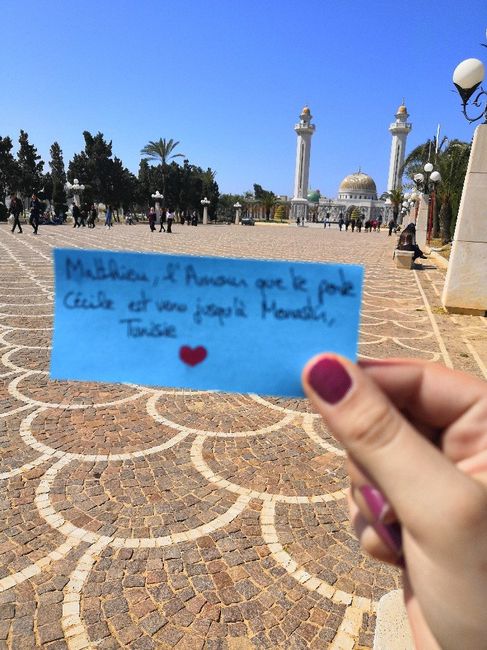 Matthieu, l'Amour que te porte
Cécile est venu jusqu'à Monastir,
Tunisie